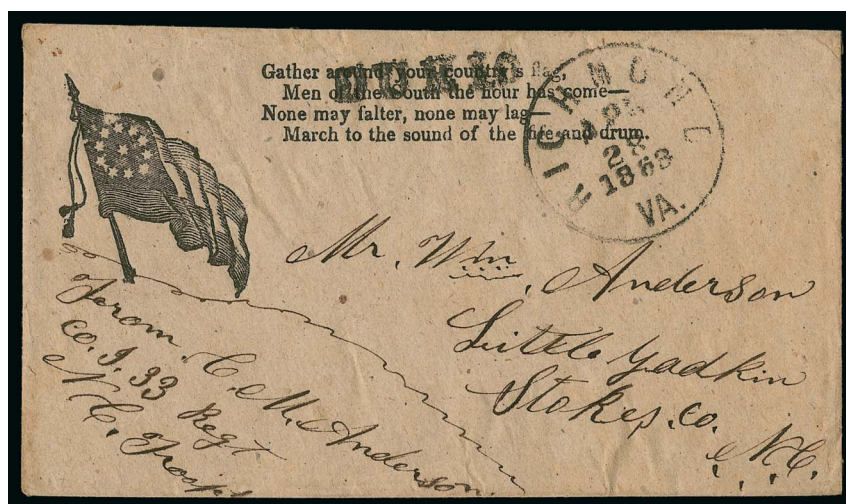 Gather around your country's flag,
Men of the South the hour has come—
None may falter, none may lag—
March to the sound of the fife and drum.
DUE 10
RICHMOND
APR
28
1863
VA.
Mr. Wm. Anderson
Little Yadkin
Stokes, Co.
N.C.
From, C. M. Anderson
Co. I. 33 Regt
N.C. Troops